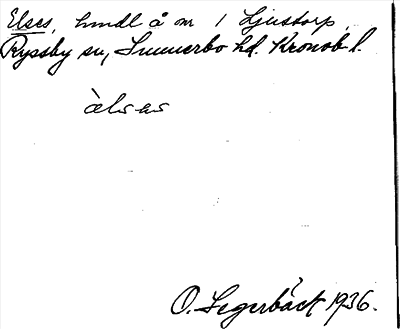 Elses, hmdl å nr 1 Ljustorp,
Ryssby sn, Sunnerbo hd. Kronob. l.
àlsas
O. Segerbäck 1936.